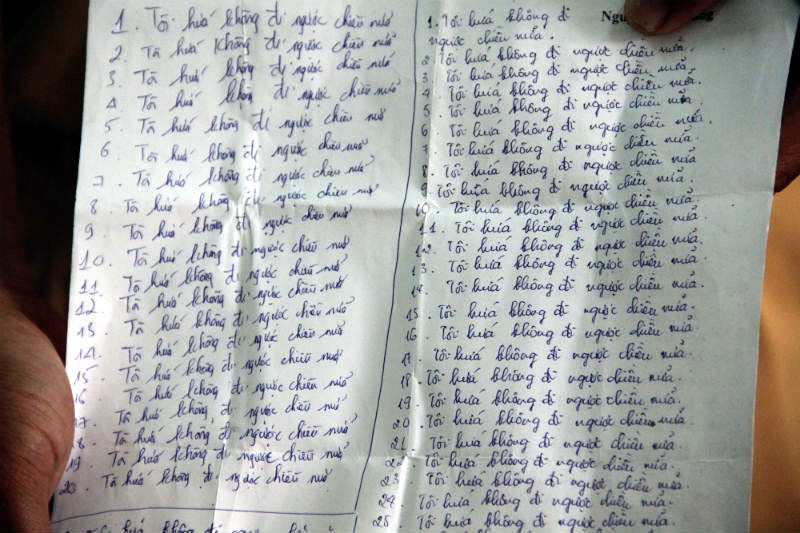 1. Tôi hứa không đi ngược chiều nữa
2. Tôi hứa không đi ngược chiều nữa
3. Tôi hứa không đi ngược chiều nữa
4. Tôi hứa không đi ngược chiều nữa
5. Tôi hứa không đi ngược chiều nữa
6. Tôi hứa không đi ngược chiều nữa
7. Tôi hứa không đi ngược chiều nữa
8. Tôi hứa không đi ngược chiều nữa
9. Tôi hứa không đi ngược chiều nữa
10. Tôi hứa không đi ngược chiều nữa
11. Tôi hứa không đi ngược chiều nữa
12. Tôi hứa không đi ngược chiều nữa
13. Tôi hứa không đi ngược chiều nữa
14. Tôi hứa không đi ngược chiều nữa
15. Tôi hứa không đi ngược chiều nữa
16 Tôi hứa không đi ngược chiều nữa
17. Tôi hứa không đi ngược chiều nữa
18. Tôi hứa không đi ngược chiều nữa
19. Tôi hứa không đi ngược chiều nữa
20. Tôi hứa không đi ngược chiều nữa
hứa không đi
1. Tôi hứa không đi
ngược chiều nữa.
2. Tôi hứa không đi ngược chiều nữa.
3. Tôi hứa không đi ngược chiều nữa.
4. Tôi hứa không đi ngược chiều nữa.
5. Tôi hứa không đi ngược chiều nữa.
6. Tôi hứa không đi ngược chiều nữa.
7. Tôi hứa không đi ngược chiều nữa.
8. Tôi hứa không đi ngược chiều nữa.
9. Tôi hứa không đi ngược chiều nữa.
10. Tôi hứa không đi ngược chiều nữa.
11. Tôi hứa không đi ngược chiều nữa
12. Tôi hứa không đi ngược chiều nữa.
13. Tôi hứa không đi ngược chiều nữa.
14. Tôi hứa không đi ngược chiều nữa.
15. Tôi hứa không đi ngược chiều nữa.
16. Tôi hứa không đi ngược chiều nữa.
17. Tôi hứa không đi ngược chiều nữa.
18. Tôi hứa không đi ngược chiều nữa.
19. Tôi hứa không đi ngược chiều nữa.
20. Tôi hứa không đi ngược chiều nữa.
21. Tôi hứa không đi ngược chiều nữa.
22. Tôi hứa không đi ngược chiều nữa.
23. Tôi hứa không đi ngược chiều nữa.
24. Tôi hứa không đi ngược chiều nữa.
25. Tôi hứa không đi ngược chiều nữa.